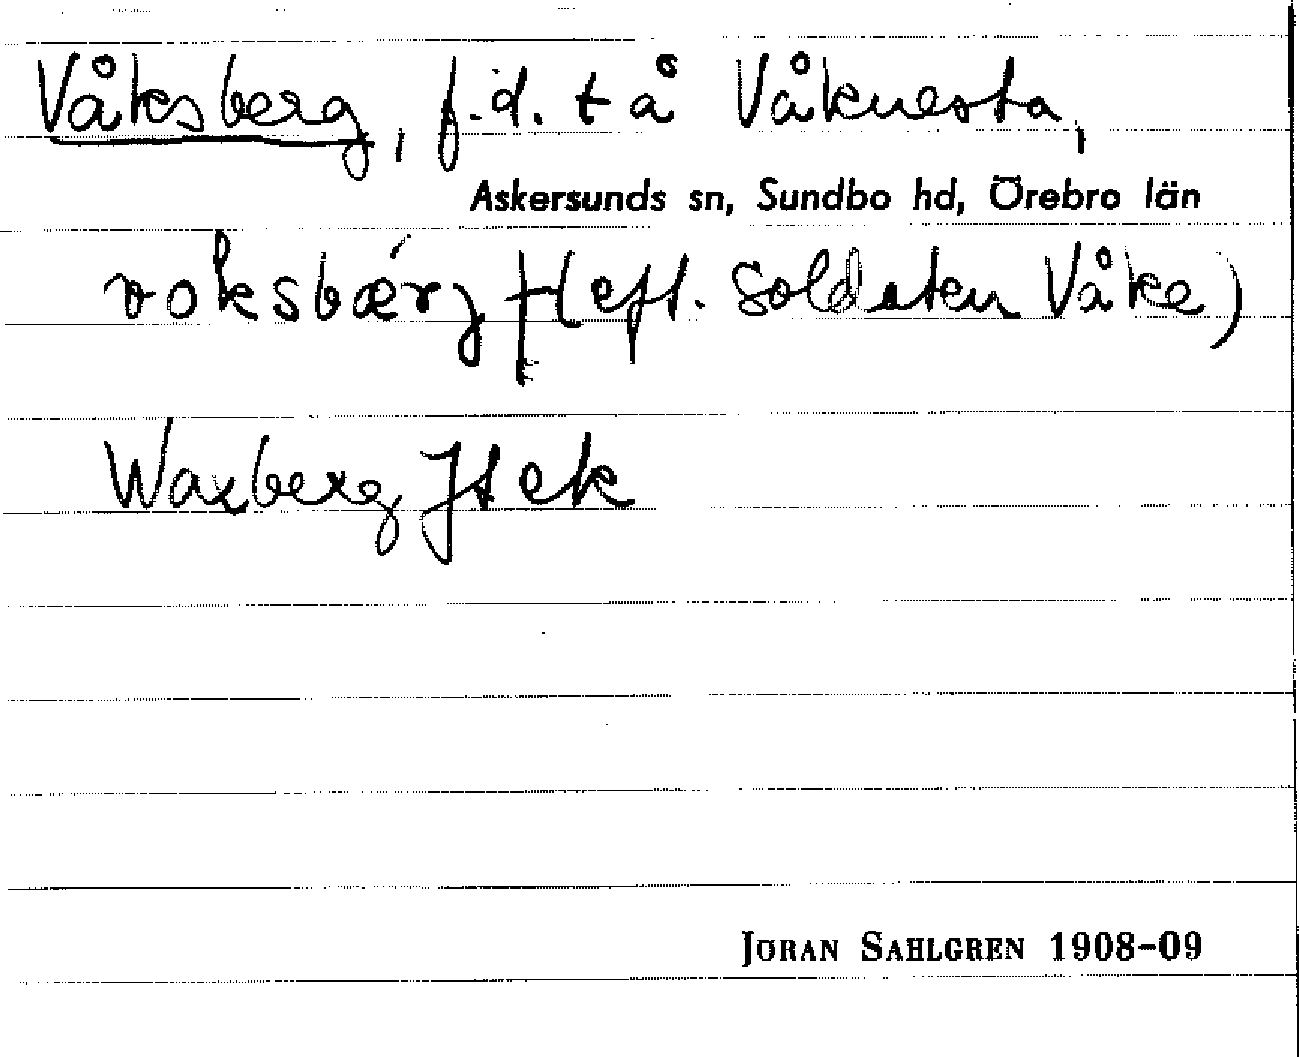 Våksberg, f.d. t å Våknesta,
Askersunds sn, Sundbo hd, Örebro län
voksbærj † (eft. soldaten Våke)
Waxberg Jt ek
JÖRAN SAHLGREN 1908–09